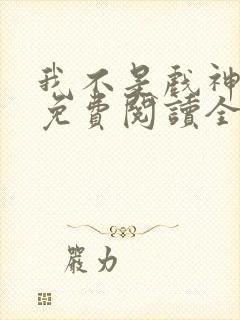 我不是戲神
免費閱讀全
嚴力